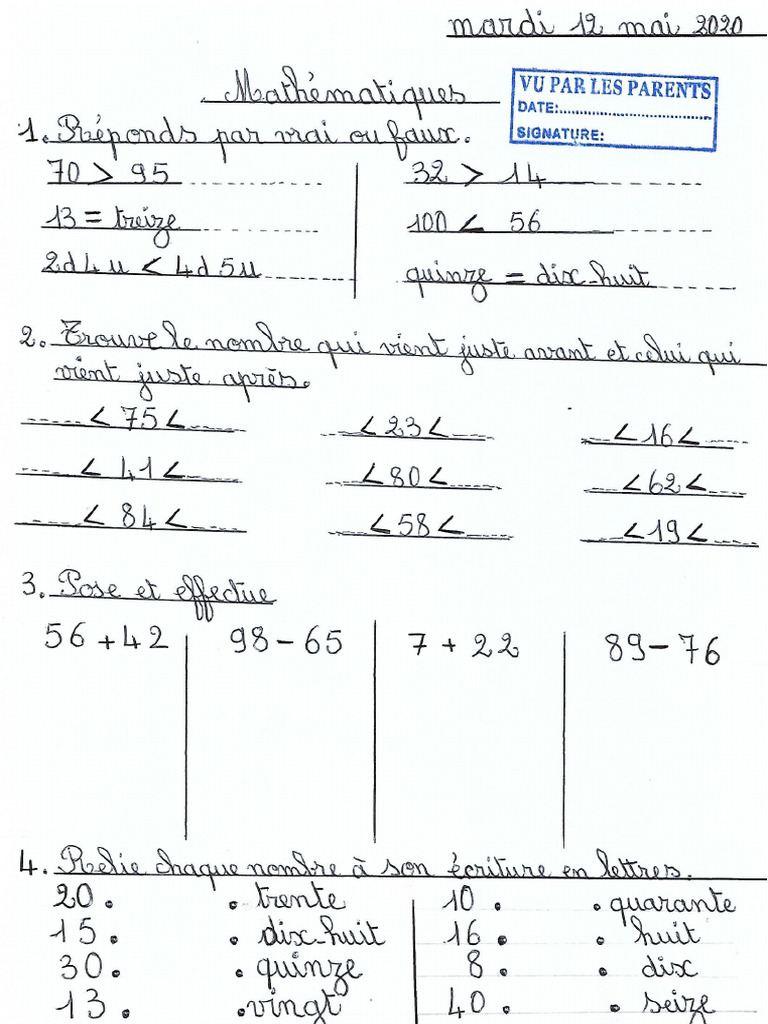 mardi 12 mai 2020
Mathématiques
VU PAR LES PARENTS
DATE:
SIGNATURE:
1. Réponds par vrai ou faux.
70 > 95
32 > 14
13 = treize
100 < 56
2d4u < 4d5u
quinze = dix-huit
2. Trouve le nombre qui vient juste avant et celui qui
vient juste après.
< 75 < < 23 < < 16 <
< 41 < < 80 < < 62 <
< 84 < < 58 < < 19 <
3. Pose et effectue
56 + 42 98 - 65 7 + 22 89 - 76
4. Relie chaque nombre à son écriture en lettres.
20 . . trente 10 . . quarante
15 . . dix-huit 16 . . huit
30 . . quinze 8 . . dix
13 . . vingt 40 . . seize